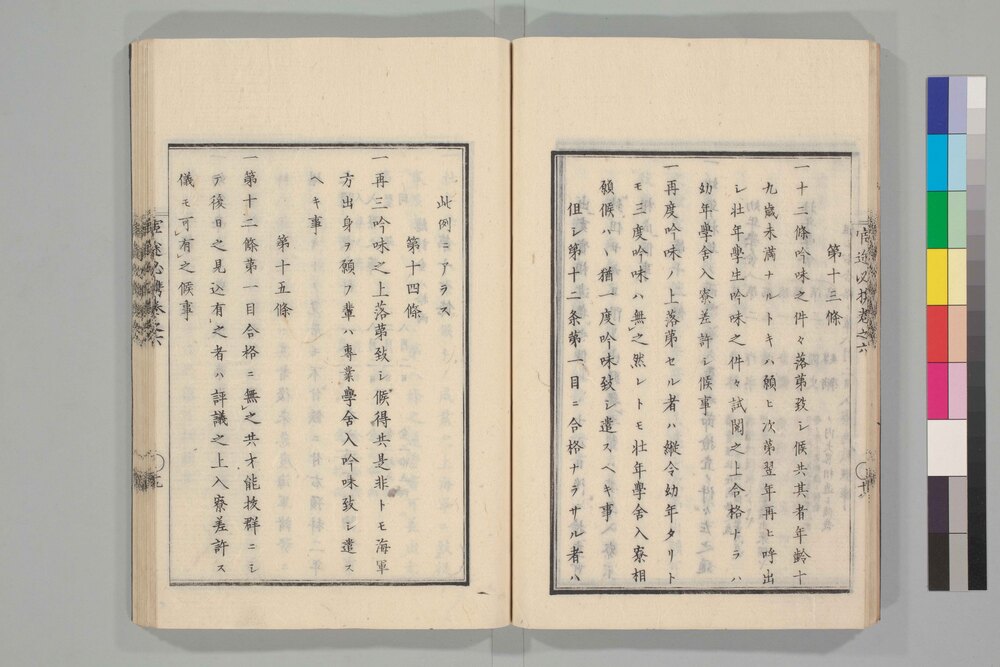 第十三條
一十二條吟味之件々落第致シ候共其者年齡十
九歳未滿ナルトキハ願ヒ次第翌年再ヒ呼出
シ壮年學生吟味之件々試閲之上合格ナラハ
幼年學舎入寮差許シ候事
一再度吟味ノ上落第セル者ハ縦令幼年タリトモ
モ三度吟味ハ無之然レトモ壮年學舎入寮相
願候ハヽ猶一度吟味致シ遣スヘキ事
但シ第十二条第一目ニ合格ナラサル者ハ
此例ニアラス
第十四條
一再三吟味之上落第致シ候得共是非トモ海軍
方出身ヲ願フ輩ハ專業學舎入吟味致シ遣ス
ヘキ事
第十五條
一第十二條第一目合格ニ無之共才能拔群ニシ
テ後日之見込有之者ハ評議之上入寮差許ス
儀モ可有之候事